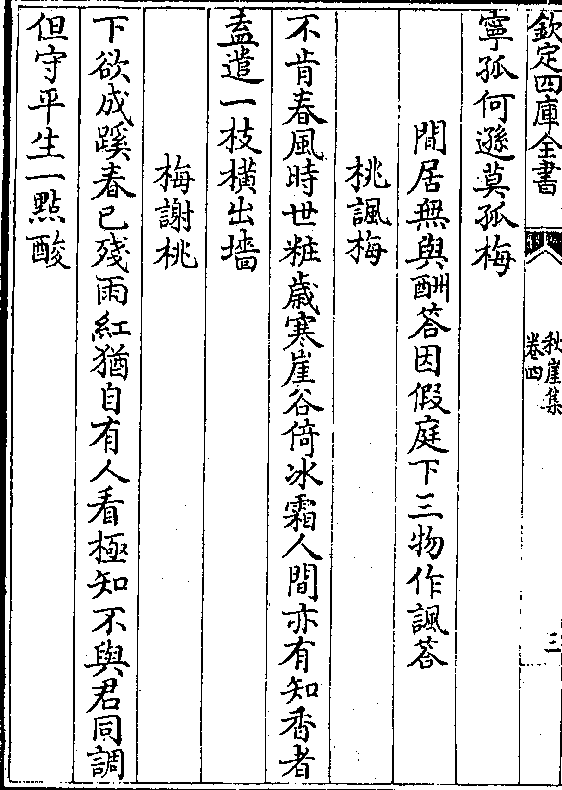 欽定四庫全書
秋崖集
卷四
三
寧孤何遜莫孤梅
閒居無與酬答因假庭下三物作諷答
桃諷梅
不肯春風時世粧歲寒崖谷倚冰霜人間亦有知香者
盍遣一枝橫出墻
梅謝桃
下欲成蹊春已殘雨紅猶自有人看極知不與君同調
但守平生一點酸